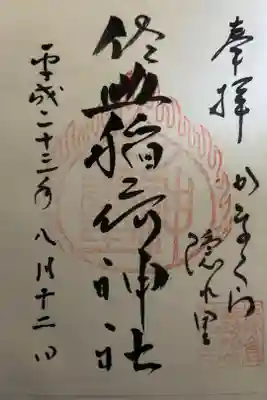 奉拝
かまくら
隠れ里
佐助稲荷神社
平成二十三年八月十二日